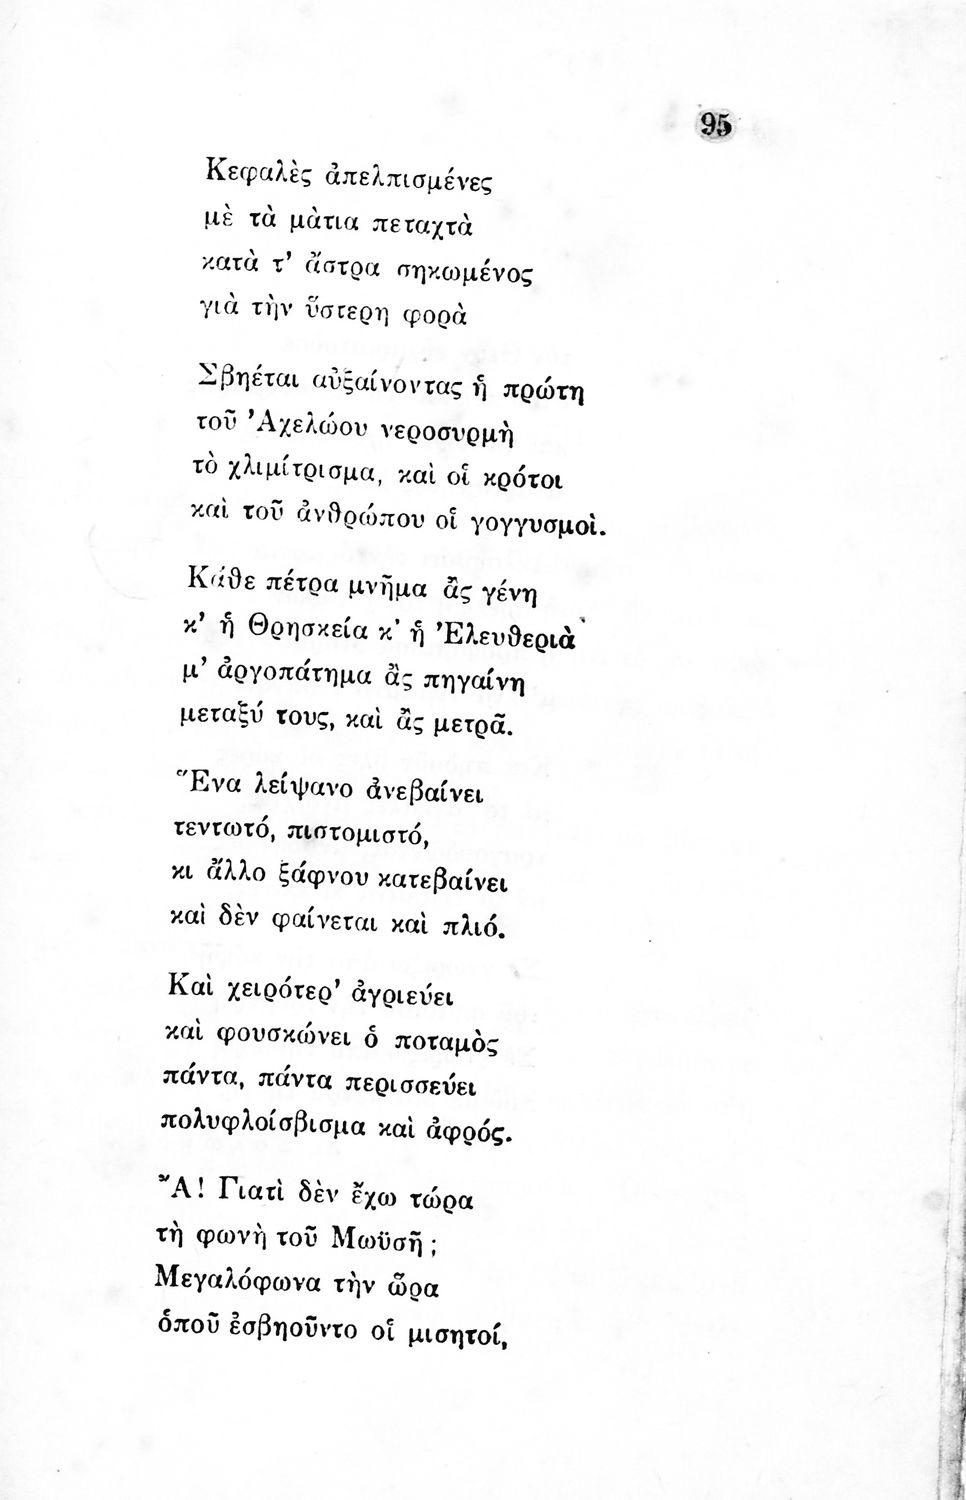 95
Κεφαλὲς ἀπελπισμένες
μὲ τὰ μὰτια πεταχτὰ
κατὰ τ’ ἄστρα σηκωμένος
γιὰ τὴν ὕστερη φορὰ
Σβηέται αὐξαίνοντας ἡ πρώτη
τοῦ ’Αχελώου νεροσυρμὴ
τὸ χλιμίτρισμα, καὶ οἱ κρότοι
καὶ τοῦ ἀνθρώπου οἱ γογγυσμοὶ.
Κάθε πέτρα μνῆμα ἂς γένη
κ’ ἡ Θρησκεία κ’ ἡ ’Ελευθεριὰ
μ’ ἀργοπάτημα ἂς πηγαίνη
μεταξύ τους, καὶ ἂς μετρᾶ.
Ἕνα λείψανο ἀνεβαίνει
τεντωτό, πιστομιστό,
κι ἄλλο ξάφνου κατεβαίνει
καὶ δὲν φαίνεται καὶ πλιό.
Καὶ χειρότερ’ ἀγριεύει
καὶ φουσκώνει ὁ ποταμὸς
πάντα, πάντα περισσεύει
πολυφλοίσβισμα καὶ ἀφρός.
Ἆ! Γιατὶ δὲν ἔχω τώρα
τὴ φωνὴ τοῦ Μωϋσῆ ;
Μεγαλόφωνα τὴν ὧρα
ὁποῦ ἐσβηοῦντο οἱ μισητοί,